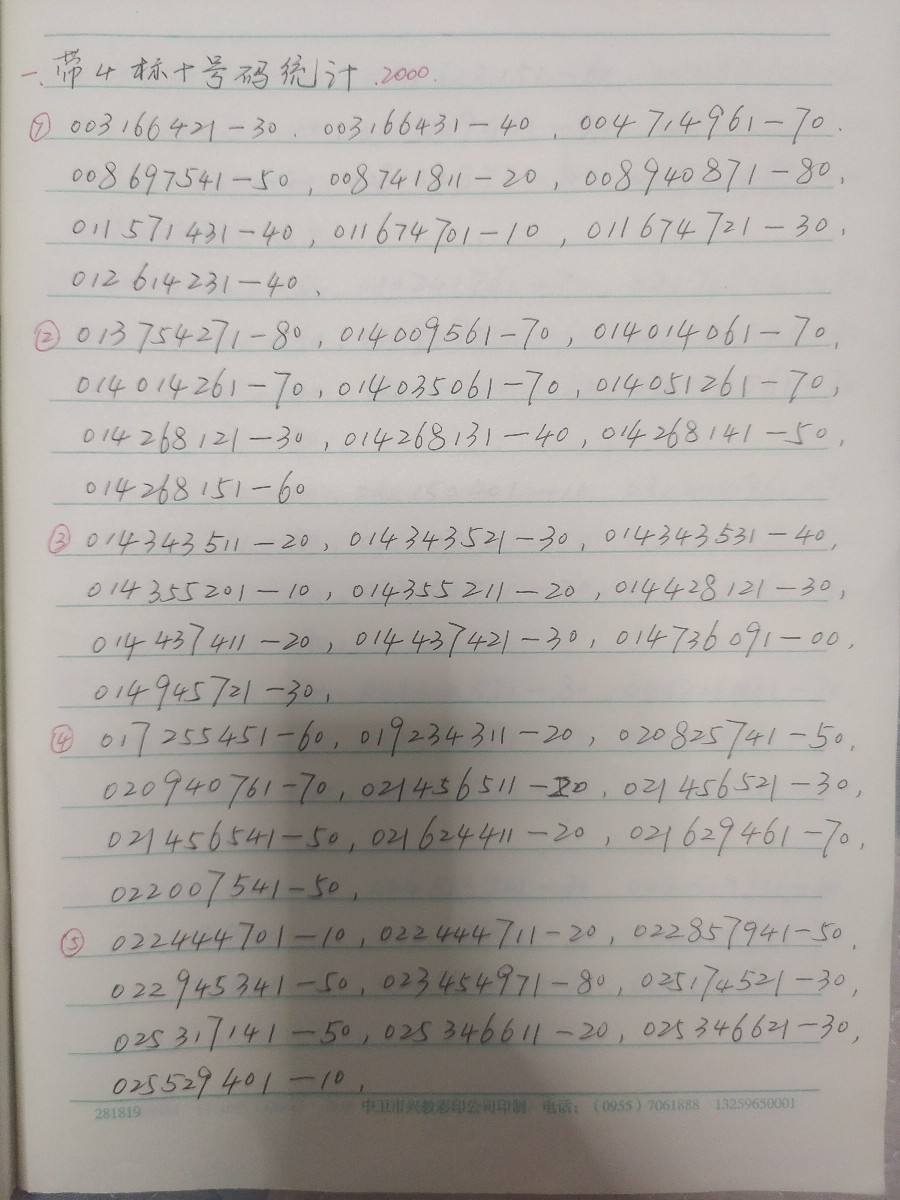 一. 带4标十号码统计.2000.
① 003166421-30. 003166431-40, 004714961-70.
008697541-50, 008741811-20, 008940871-80,
011571431-40, 011674701-10, 011674721-30,
012614231-40、
② 013754271-80, 014009561-70, 014014061-70,
014014261-70, 014035061-70, 014051261-70,
014268121-30, 014268131-40, 014268141-50,
014268151-60
③ 014343511-20, 014343521-30, 014343531-40,
014355201-10, 014355211-20, 014428121-30,
014437411-20, 014437421-30, 014736091-00,
014945721-30,
④ 017255451-60, 019234311-20, 020825741-50,
020940761-70, 021456511-20, 021456521-30,
021456541-50, 021624411-20, 021629461-70,
022007541-50,
⑤ 022444701-10, 022444711-20, 022857941-50,
022945341-50, 023454971-80, 025174521-30,
025317141-50, 025346611-20, 025346621-30,
025529401-10,
281819 中卫市兴教彩印公司印制 电话:(0955)7061888 13259650001